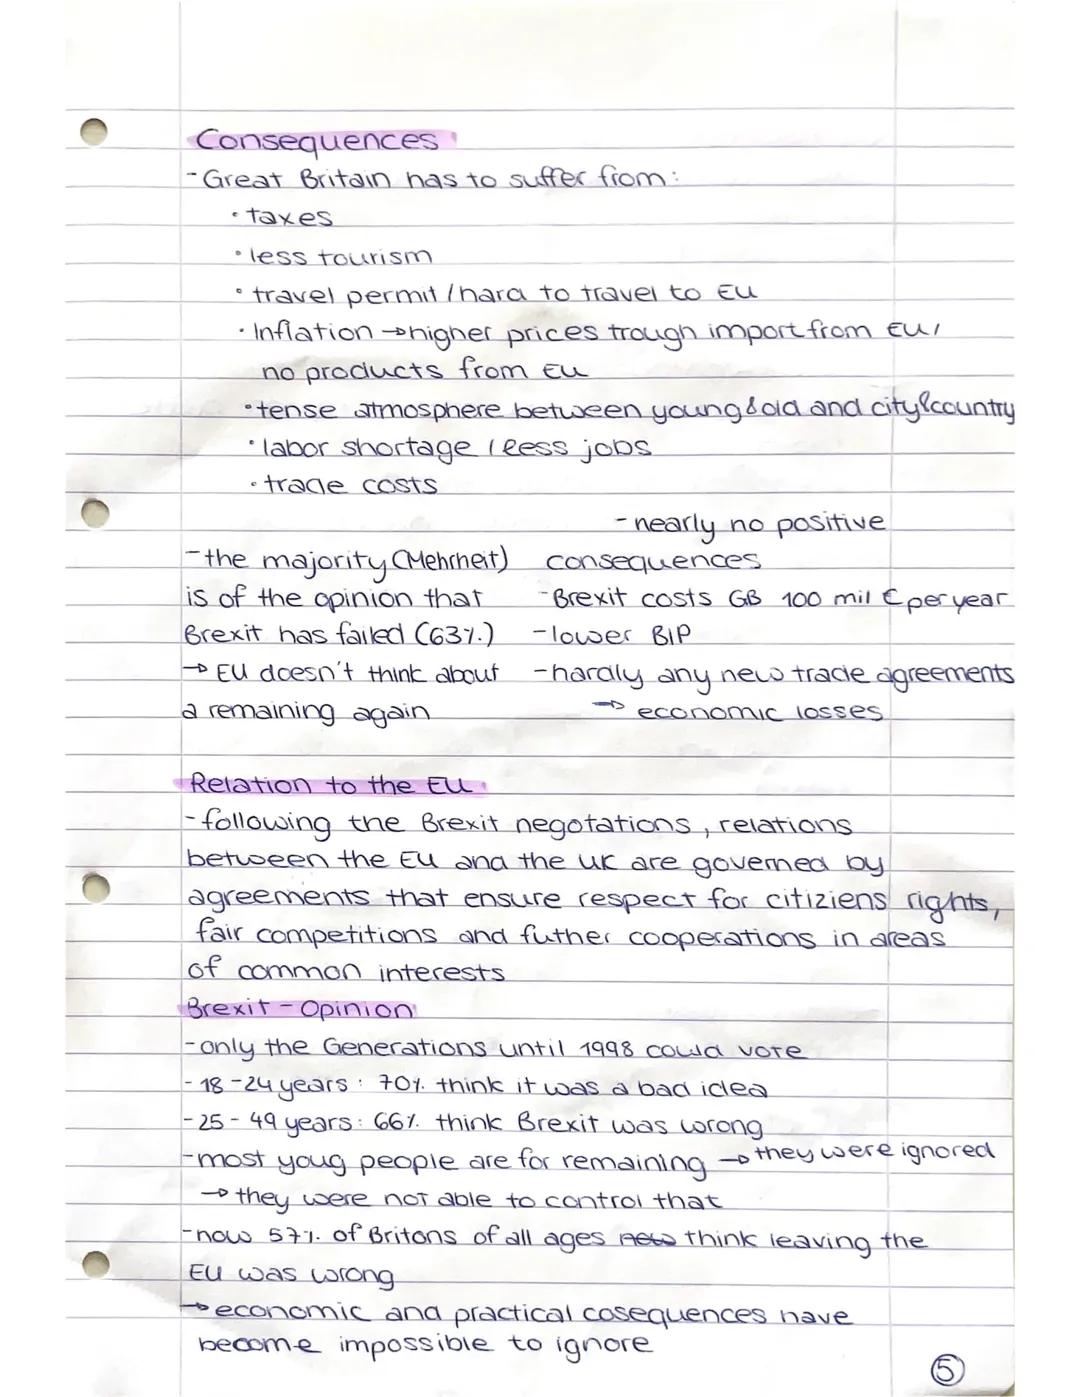 Consequences
- Great Britain has to suffer from:
• taxes
• less tourism
• travel permit / hard to travel to EU
• Inflation → higher prices trough import from EU /
no products from EU
• tense atmosphere between young & old and city & country
• labor shortage / less jobs
• trade costs
- the majority (Mehrheit)
is of the opinion that
Brexit has failed (63%.)
→ EU doesn't think about
a remaining again
- nearly no positive
consequences
- Brexit costs GB 100 mil € per year
- lower BIP
- hardly any new trade agreements
→ economic losses
Relation to the EU
- following the Brexit negotations, relations
between the EU and the UK are governed by
agreements that ensure respect for citiziens rights,
fair competitions and futher cooperations in areas
of common interests
Brexit - Opinion
- only the Generations until 1998 could vote
- 18 - 24 years : 70%. think it was a bad idea
- 25 - 49 years: 66%. think Brexit was wrong
- most youg people are for remaining → they were ignored
→ they were not able to control that
- now 57%. of Britons of all ages new think leaving the
EU was wrong
→ economic and practical cosequences have
become impossible to ignore
5